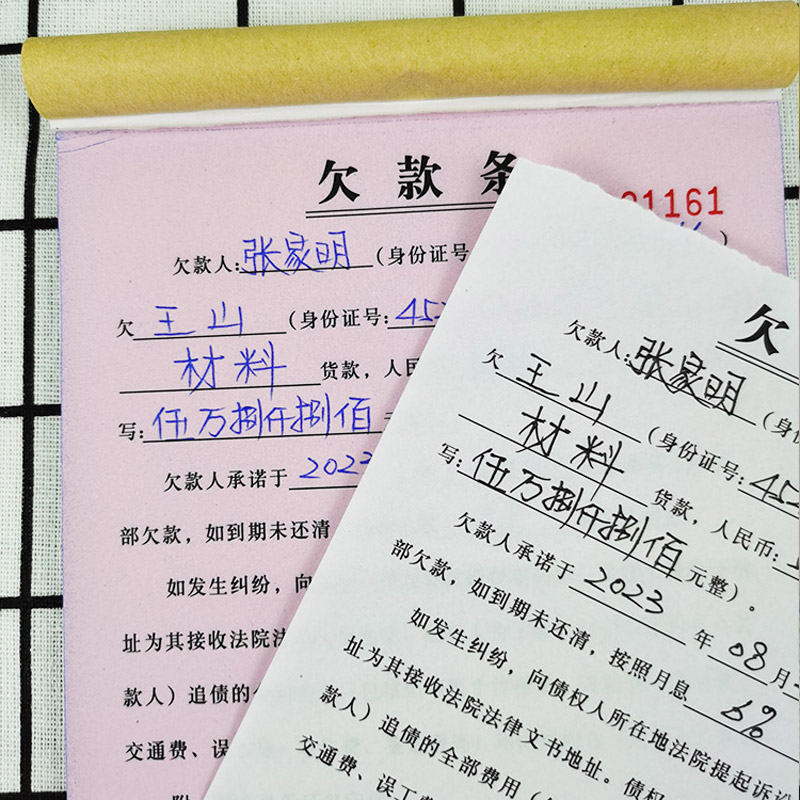 欠款条
1161
欠款人:张家明(身份证号
欠王山(身份证号:45
材料货款,人民
写:伍万捌仟捌佰
欠款人承诺于2023
部欠款,如到期未还清
如发生纠纷,向
址为其接收法院法
款人)追债的
交通费、误
欠
欠款人:张家明(身份
欠王山(身份证号:452
材料货款,人民币:
写:伍万捌仟捌佰元整)。
欠款人承诺于2023年08月
部欠款,如到期未还清,按照月息6%
如发生纠纷,向债权人所在地法院提起诉讼
址为其接收法院法律文书地址。债权
款人)追债的全部费用(
交通费、误工费